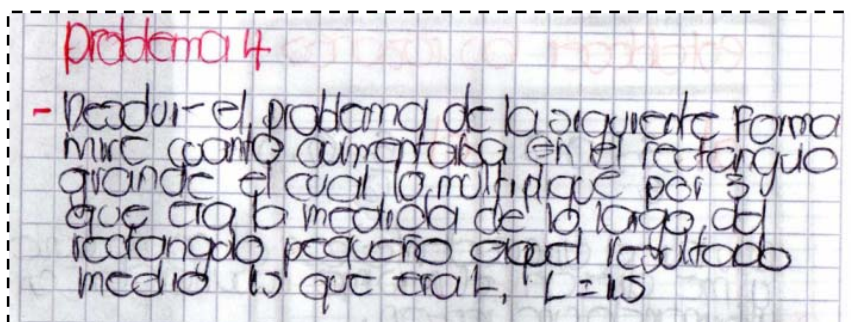 problema 4
- Resolvi el problema de la siguiente forma
mire cuanto aumentaba en el rectanguo
grande el cual lo multiplique por 3 y
que era la medida de lo largo del
rectangulo pequeño aquel resultado
medio 15 que era L, L = 15